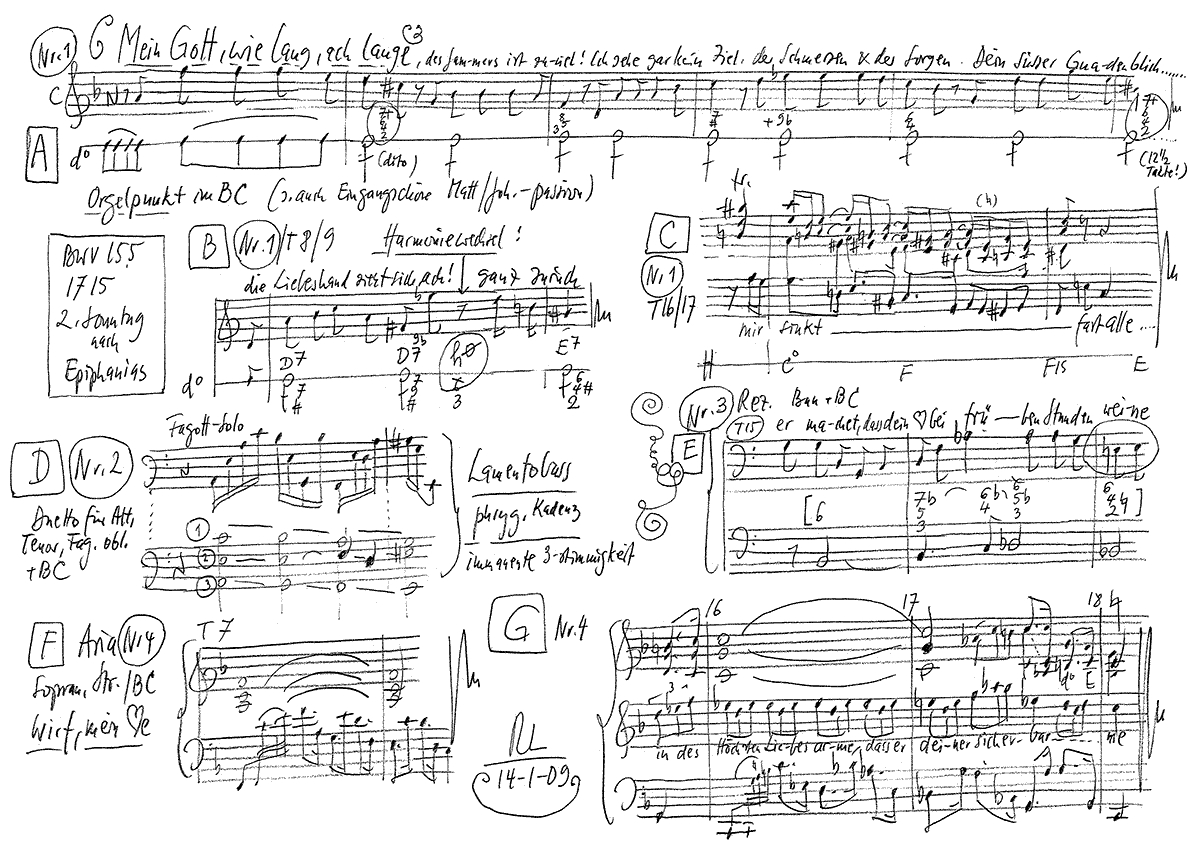 Nr.1 Mein Gott, wie lang, ach lange, des Jammers ist zu viel! Ich sehe gar kein Ziel. der Schmerzen & des Sorgen. Dein süßer Gna-denblick......
C
A d° (dito) (12½ Takte!)
Orgelpunkt im BC (s. auch Eingangschöre Matt/Joh.-passion)
BWV 155
1715
2. Sonntag
nach
Epiphanias
B Nr.1 / T 8/9 Harmoniewechsel!
die Liebeshand zieht sich, ach! ganz zurück
D7 D7 9b E7
d° 7 # 7 9 # 6 4# 2
C
Nr.1
T16/17
tr. (h)
mir sinkt fast alle ....
H C° F Fis E
D Nr.2
Fagott-Solo
Duetto für Alt,
Tenor, Fag. obl.
+BC
1
2
3
Lamentobass
phryg. Kadenz
immanente 3-stimmigkeit
Nr.3 Rez. Bass+BC
T15 er ma-chet, dass dein ♡ bei trü — ben Stunden wei-ne
E
[6 7b 5 3 6b 4 6 5b 3 6 4 2 ]
F Aria Nr4
T 7
Sopran, Str./BC
Wirf, mein ♡e
G Nr.4
16 17 18
3
in des Höchsten Lie-bes ar-me, dass er dei-ner sich er-bar me
14-1-09